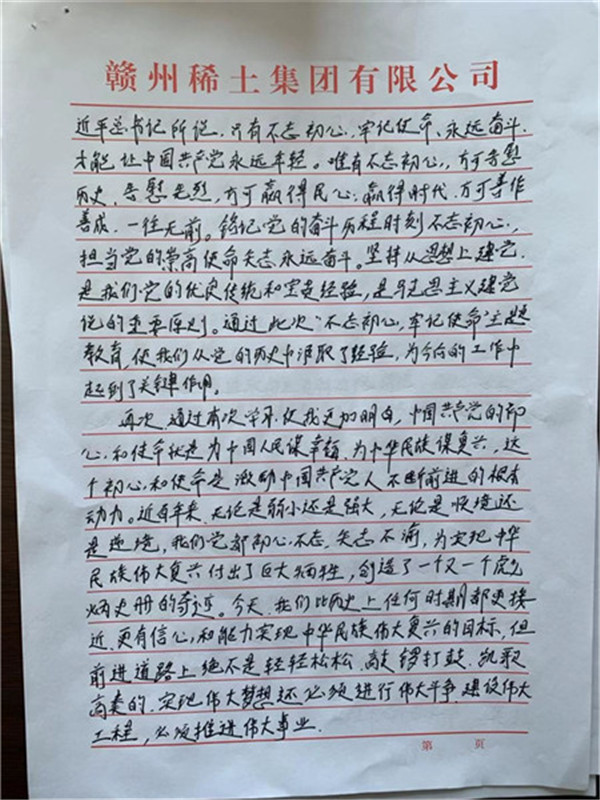 赣州稀土集团有限公司
近平总书记所说，只有不忘初心、牢记使命、永远奋斗，
才能让中国共产党永远年轻。唯有不忘初心，方可告慰
历史、告慰先烈，方可赢得民心、赢得时代，方可善作
善成、一往无前。铭记党的奋斗历程时刻不忘初心，
担当党的崇高使命矢志永远奋斗。坚持从思想上建党，
是我们党的优良传统和宝贵经验，是马克思主义建党
说的重要原则。通过此次“不忘初心，牢记使命”主题
教育，使我们从党的历史中汲取了经验，为今后的工作中
起到了关键作用。
再次，通过本次学习使我更加明白，中国共产党的初
心和使命就是为中国人民谋幸福，为中华民族谋复兴，这
个初心和使命是激励中国共产党人不断前进的根本
动力。近百年来，无论是弱小还是强大，无论是顺境还
是逆境，我们党都初心不忘、矢志不渝，为实现中华
民族伟大复兴付出了巨大牺牲，创造了一个又一个彪
炳史册的奇迹。今天，我们比历史上任何时期都更接
近、更有信心和能力实现中华民族伟大复兴的目标，但
前进道路上绝不是轻轻松松、敲锣打鼓、凯歌
高奏的，实现伟大梦想还必须进行伟大斗争，建设伟大
工程，必须推进伟大事业。
第 页